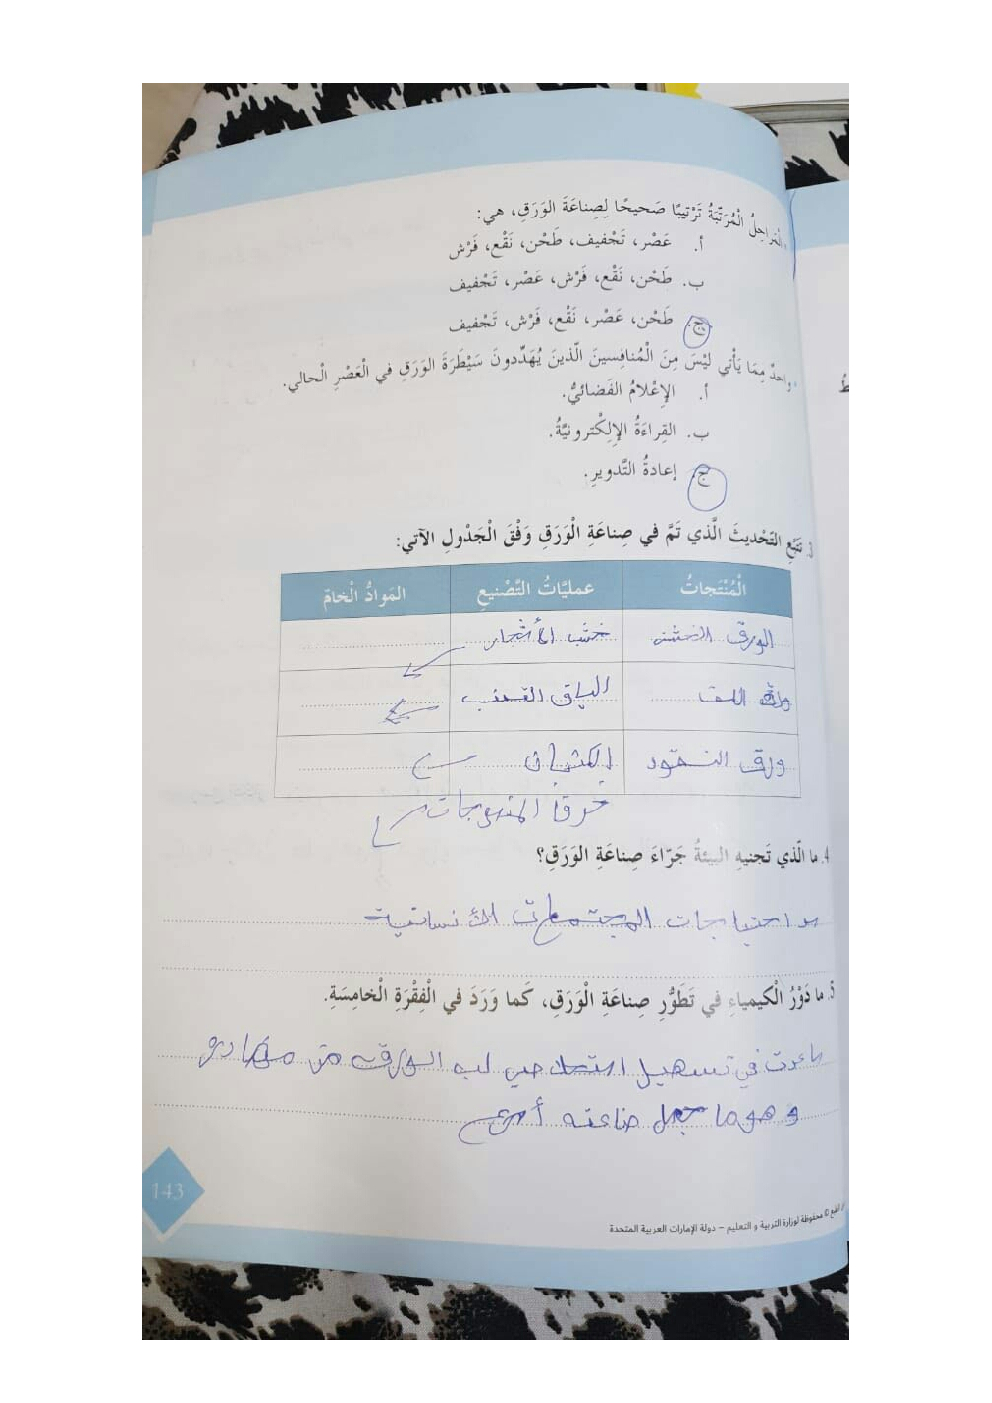 الْمَراحِلُ الْمُرَتَّبَةُ تَرْتيبًا صَحيحًا لِصِناعَةِ الوَرَقِ، هي:
أ. عَصْر، تَجْفيف، طَحْن، نَقْع، فَرْش
ب. طَحْن، نَقْع، فَرْش، عَصْر، تَجْفيف
ج. طَحْن، عَصْر، نَقْع، فَرْش، تَجْفيف
واحِدٌ مِمّا يَأْتي لَيْسَ مِنَ الْمُنافِسينَ الّذينَ يُهَدِّدونَ سَيْطَرَةَ الوَرَقِ في الْعَصْرِ الْحالي.
أ. الإِعْلامُ الفَضائيُّ.
ب. القِراءَةُ الإِلِكْترونيَّةُ.
ج. إعادَةُ التَّدويرِ.
3. تَتَبَّعِ التَّحْديثَ الَّذي تَمَّ في صِناعَةِ الْوَرَقِ وَفْقَ الْجَدْولِ الآتي:
الْمُنْتَجاتُ عمليَّاتُ التَّصْنيعِ المَوادُّ الْخامّ
الورق الخشن خشب الأشجار
ورق اللف القصب
ورق النقود الكتان
خرق المنسوجات
4. ما الَّذي تَجنيهِ البيئَةُ جَرّاءَ صِناعَةِ الوَرَقِ؟
احتياجات المجتمعات الأنسانية
5. ما دَوْرُ الْكيمياءِ في تَطَوُّرِ صِناعَةِ الْوَرَقِ، كَما وَرَدَ في الْفِقْرَةِ الْخامِسَةِ.
ساعدت في تسهيل استخلاص لب الورق من مصادره
وهو ما جعل صناعته أسرع
143
© محفوظة لوزارة التربية و التعليم – دولة الإمارات العربية المتحدة